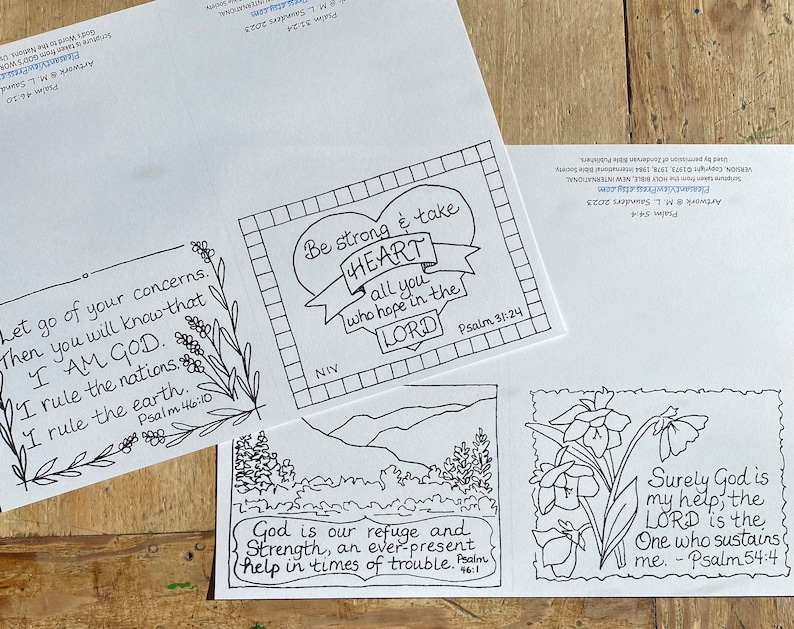 Scripture is taken from GOD'S WOR
God's Word to the Nations. Us
PleasantViewPress.e
Artwork @ M. L. Saund
Psalm 46:10
Press.etsy.com
Saunders 2023
Psalm 31:24
Let go of your concerns.
Then you will know that
I AM GOD.
I rule the nations.
I rule the earth.
Psalm 46:10
Be strong & take
HEART
all you
who hope in the
LORD
Psalm 31:24
NIV
Scripture taken from the HOLY BIBLE, NEW INTERNATIONAL
VERSION, Copyright ©1973, 1978, 1984 International Bible Society.
Used by permission of Zondervan Bible Publishers.
PleasantViewPress.etsy.com
Artwork @ M. L. Saunders 2023
Psalm 54:4
God is our refuge and
Strength, an ever-present
help in times of trouble. Psalm
46:1
Surely God is
my help; the
LORD is the
One who sustains
me. - Psalm 54:4